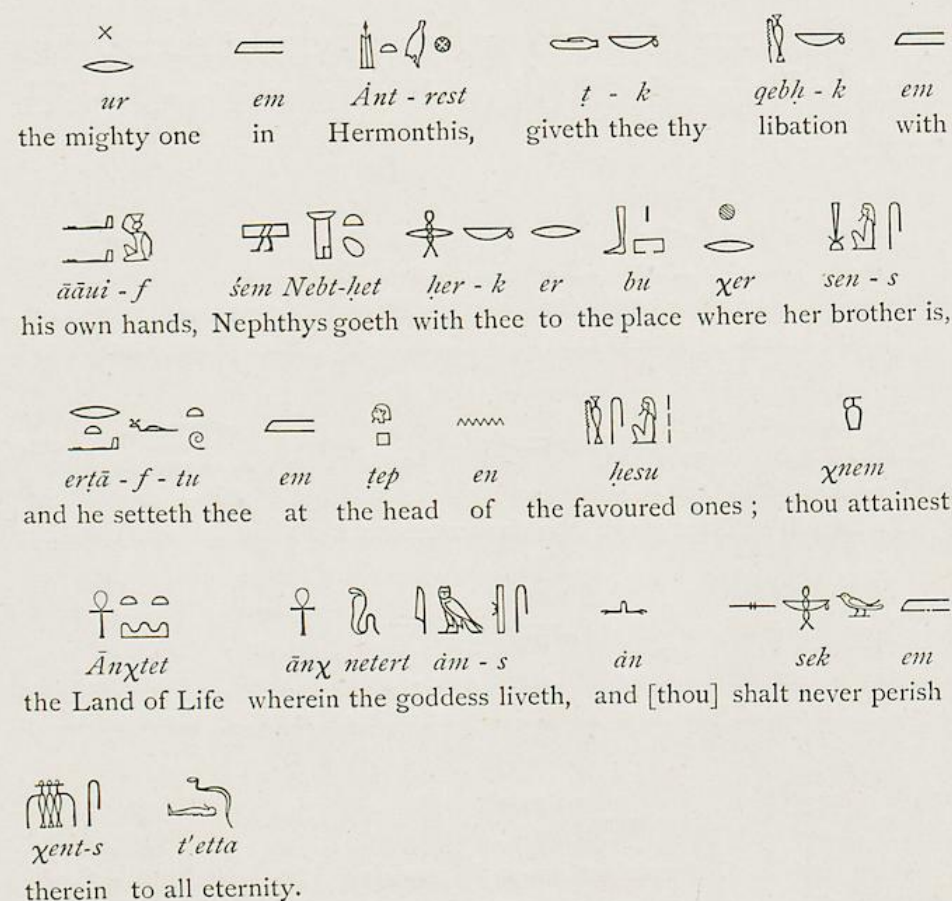 ur em Ȧnt - rest ṭ - k qebḥ - k em
the mighty one in Hermonthis, giveth thee thy libation with
āāui - f śem Nebt-ḥet ḥer - k er bu χer sen - s
his own hands, Nephthys goeth with thee to the place where her brother is,
erṭā - f - tu em ṭep en ḥesu χnem
and he setteth thee at the head of the favoured ones ; thou attainest
Ānχtet ānχ netert ȧm - s ȧn sek em
the Land of Life wherein the goddess liveth, and [thou] shalt never perish
χent-s t'etta
therein to all eternity.